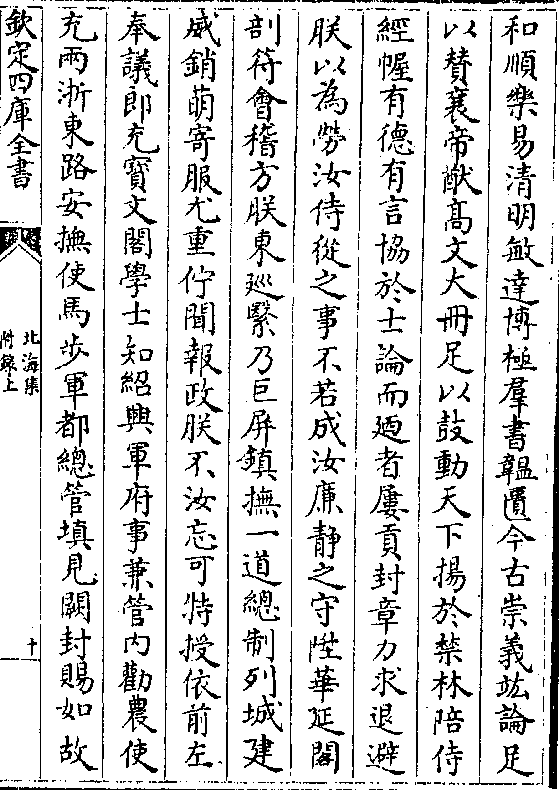 和順樂易清明敏達博極羣書韞匵今古崇義竑論足
以賛襄帝猷髙文大冊足以鼓動天下揚於禁林陪侍
經幄有德有言協於士論而廼者屢貢封章力求退避
朕以為勞汝侍從之事不若成汝廉静之守陞華延閣
剖符會稽方朕東廵繄乃巨屏鎮撫一道總制列城建
威銷萌寄服尤重佇聞報政朕不汝忘可特授依前左
奉議郎充寳文閣學士知紹興軍府事兼管内勸農使
充兩浙東路安撫使馬步軍都總管填見闕封賜如故
欽定四庫全書
北海集
附録上
十